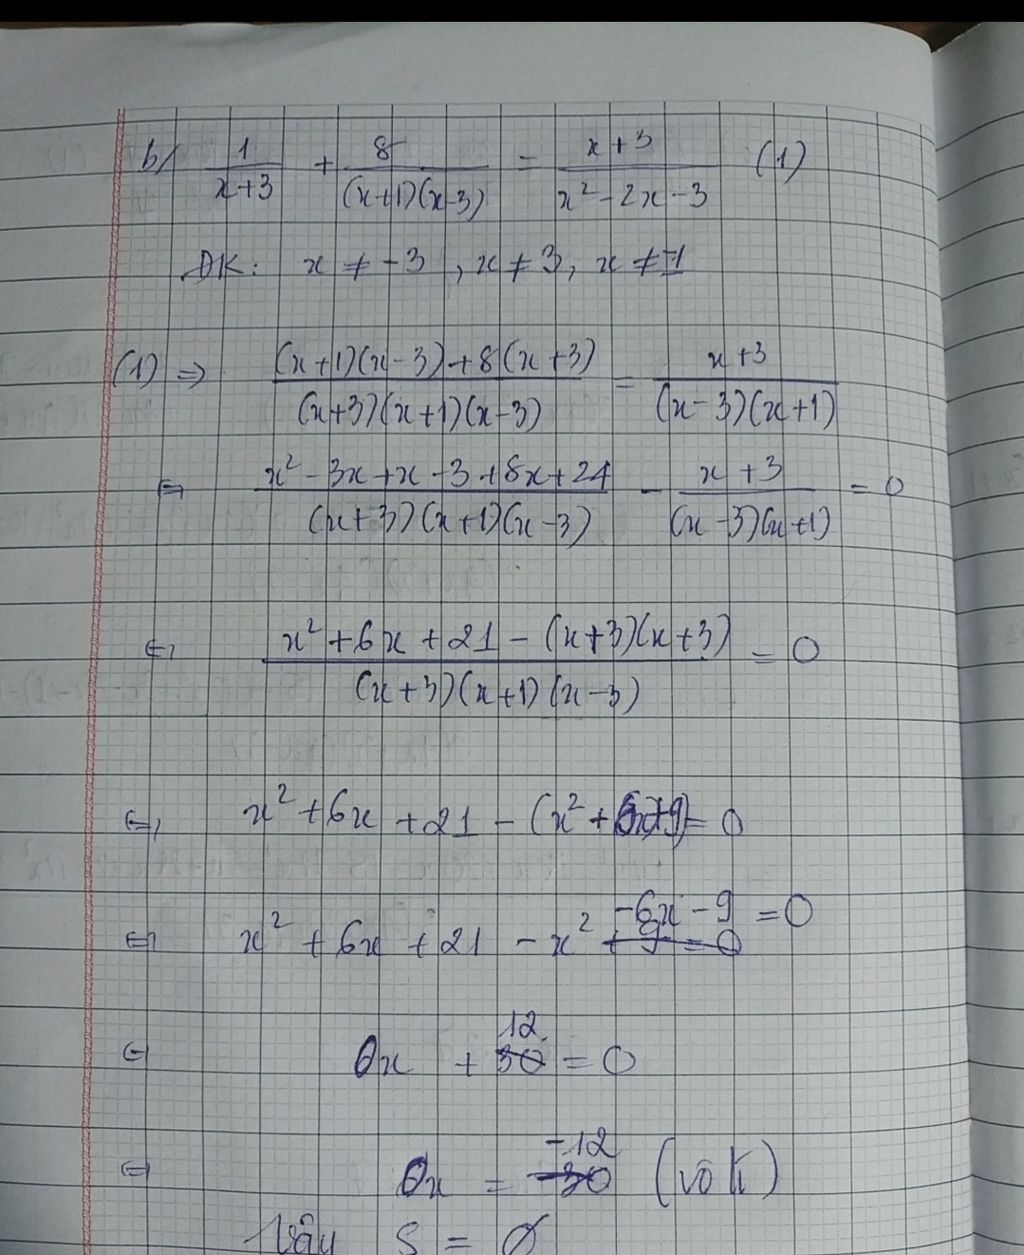 b/ 1/(x+3) + 8/((x+1)(x-3)) = (x+3)/(x²-2x-3) (1)
ĐK: x ≠ -3, x ≠ 3, x ≠ -1
(1) ⇒ ((x+1)(x-3)+8(x+3))/((x+3)(x+1)(x-3)) = (x+3)/((x-3)(x+1))
⇔ (x²-3x+x-3+8x+24)/((x+3)(x+1)(x-3)) - (x+3)/((x-3)(x+1)) = 0
⇔ (x²+6x+21-(x+3)(x+3))/((x+3)(x+1)(x-3)) = 0
⇔ x²+6x+21-(x²+6x+9)=0
⇔ x²+6x+21-x²-6x-9=0
⇔ 0x + 12 = 0
⇔ 0x = -12 (vô lí)
Vậy S = Ø